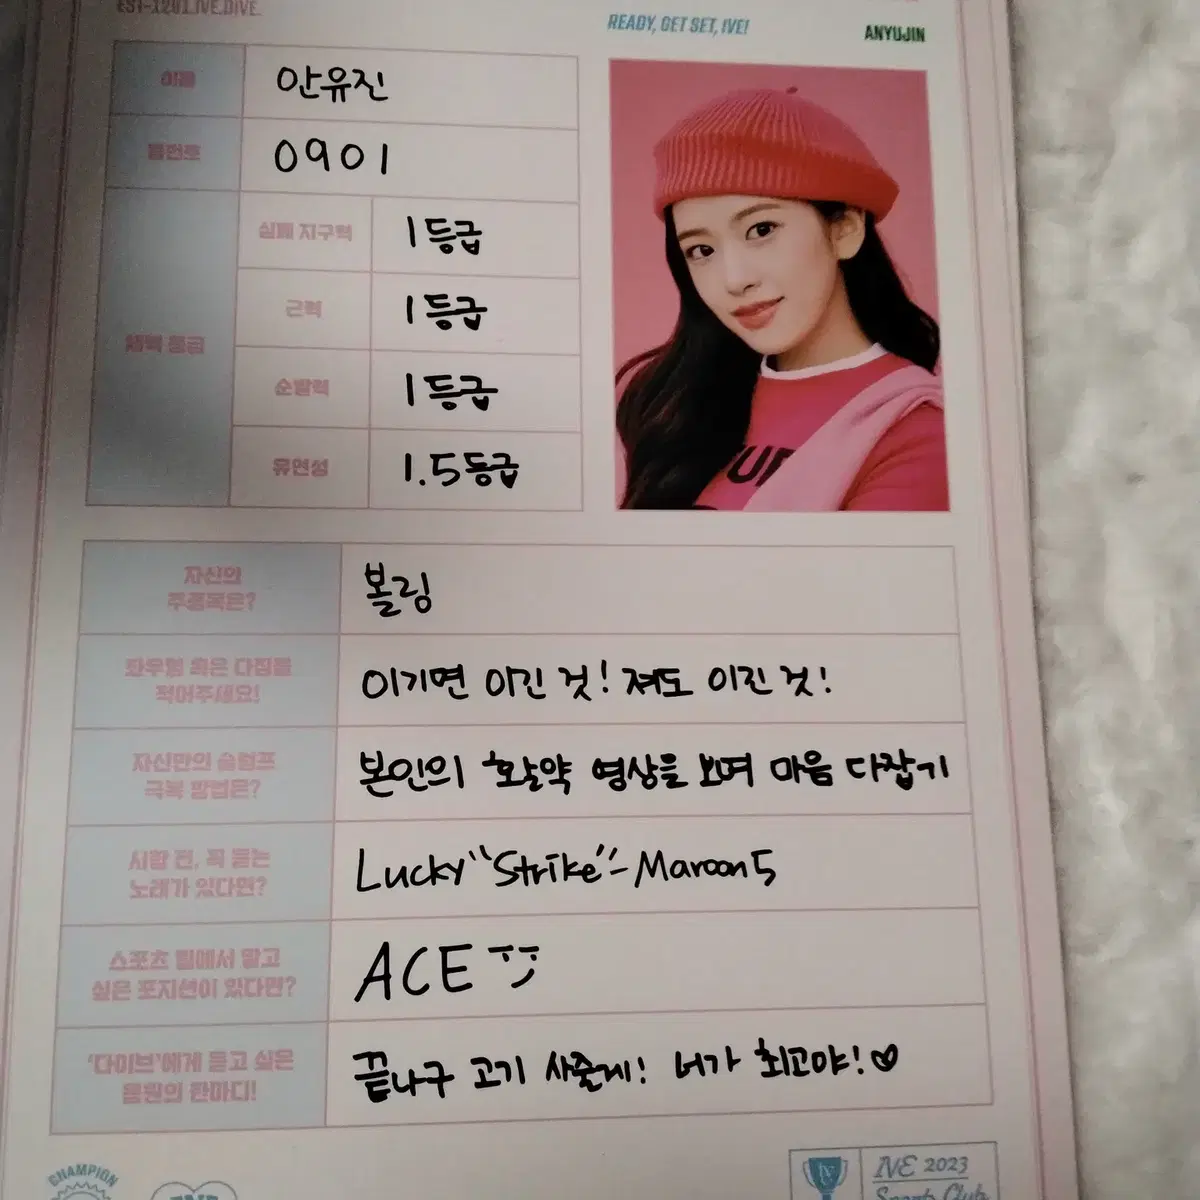 EST-1201.IVE.DIVE.
READY, GET SET, IVE!
ANYUJIN
이름
안유진
0901
심폐 지구력
1등급
근력
1등급
체력 등급
순발력
1등급
유연성
1.5등급
자신의
주종목은?
볼링
좌우명 혹은 다짐을
적어주세요!
이기면 이긴 것! 져도 이긴 것!
자신만의 슬럼프
극복 방법은?
본인의 활약 영상을 보며 마음 다잡기
시합 전, 꼭 듣는
노래가 있다면?
Lucky "Strike" - Maroon5
스포츠 팀에서 맡고
싶은 포지션이 있다면?
ACE
'다이브'에게 듣고 싶은
응원의 한마디!
끝나구 고기 사줄게! 너가 최고야!♡
CHAMPION
IVE
IVE 2023
Sports Club